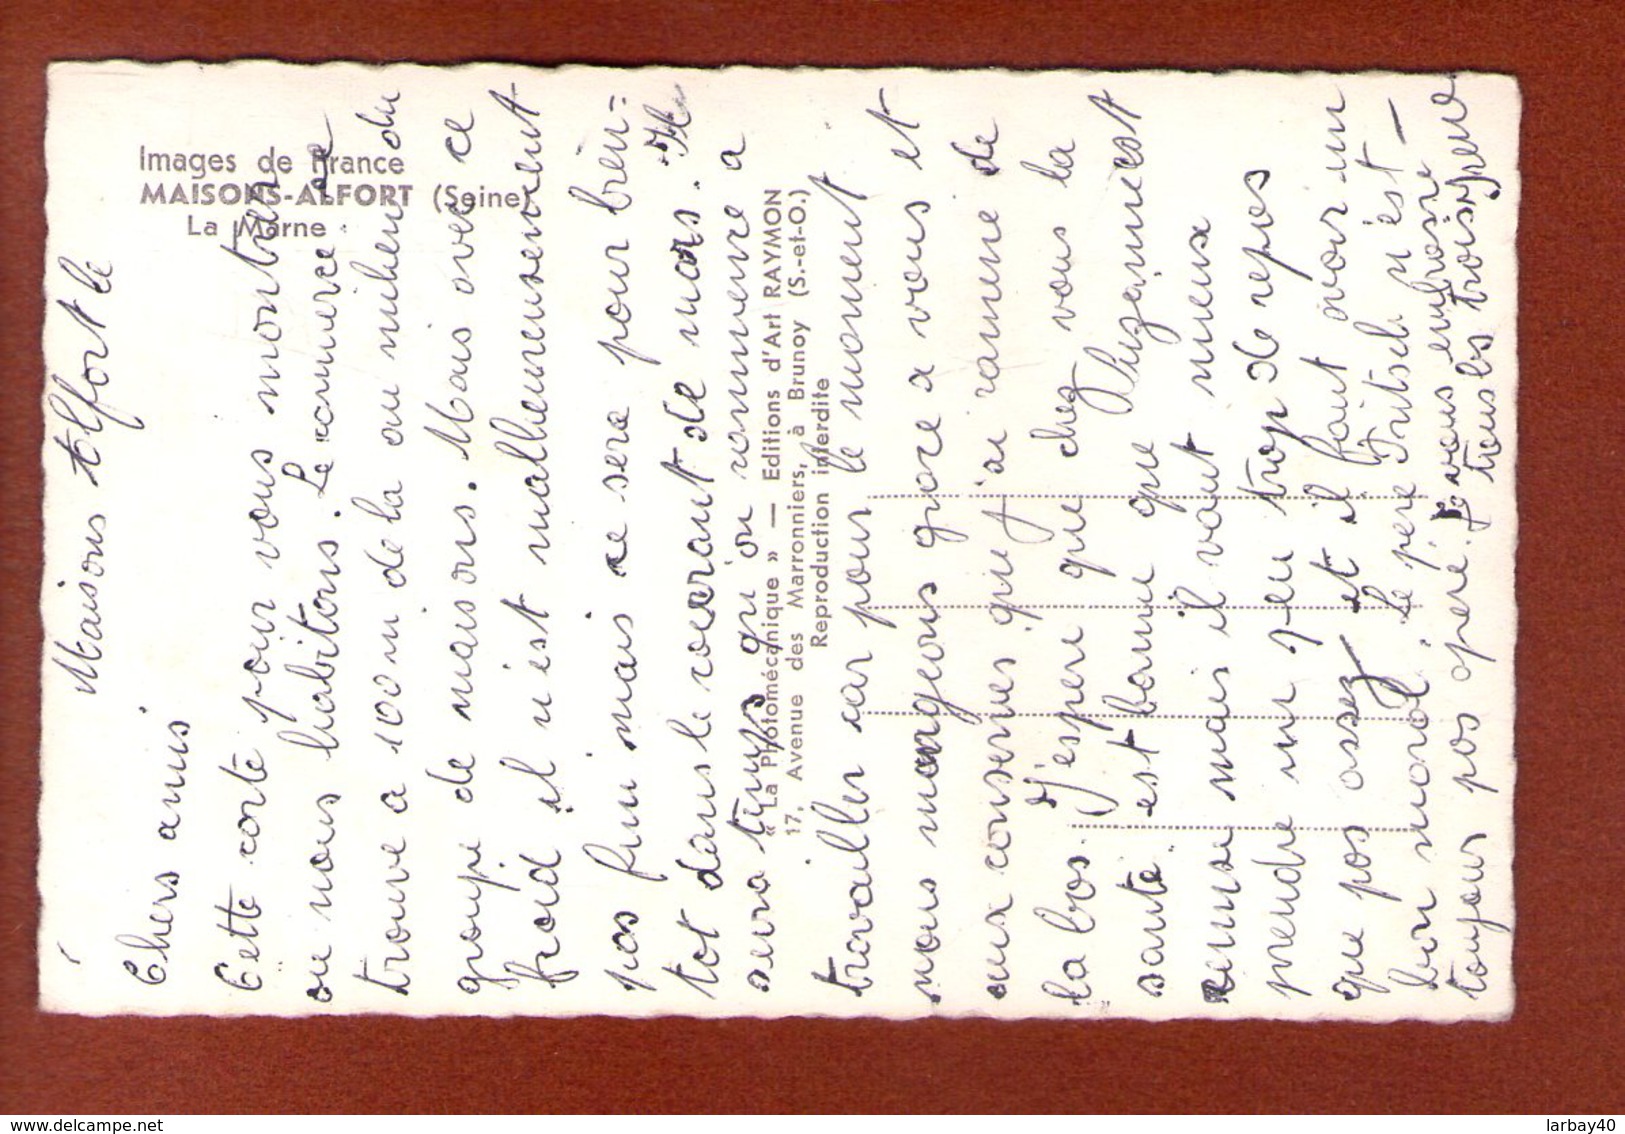 Images de France
MAISONS-ALFORT (Seine)
La Marne
Maisons Alfort le
Chers amis
Cette carte pour vous montrer
ou nous habitons. Le commerce se
trouve a 100 m de la au milieu du
groupe de maisons. Mais avec ce
froid il n'est malheureusement
pas fini mais ce sera pour bien=
tot dans le courant de mars. Il
sera temps qu'on commence a
travailler car pour le moment
nous mangeons grace a vous et
aux conserves que j'ai ramene de
la bas. J'espere que chez vous la
sante est bonne que Suzanne est
remise mais il vaut mieux
prendre un peu trop de repos
que pas assez et il faut avoir un
bon moral. Le pere Fritsch n'est
toujours pas opere. Je vous embrasse
tous les trois
« La Photomécanique » — Editions d'Art RAYMON
17, Avenue des Marronniers, à Brunoy (S.-et-O.)
Reproduction interdite
delcampe.net
larbay40